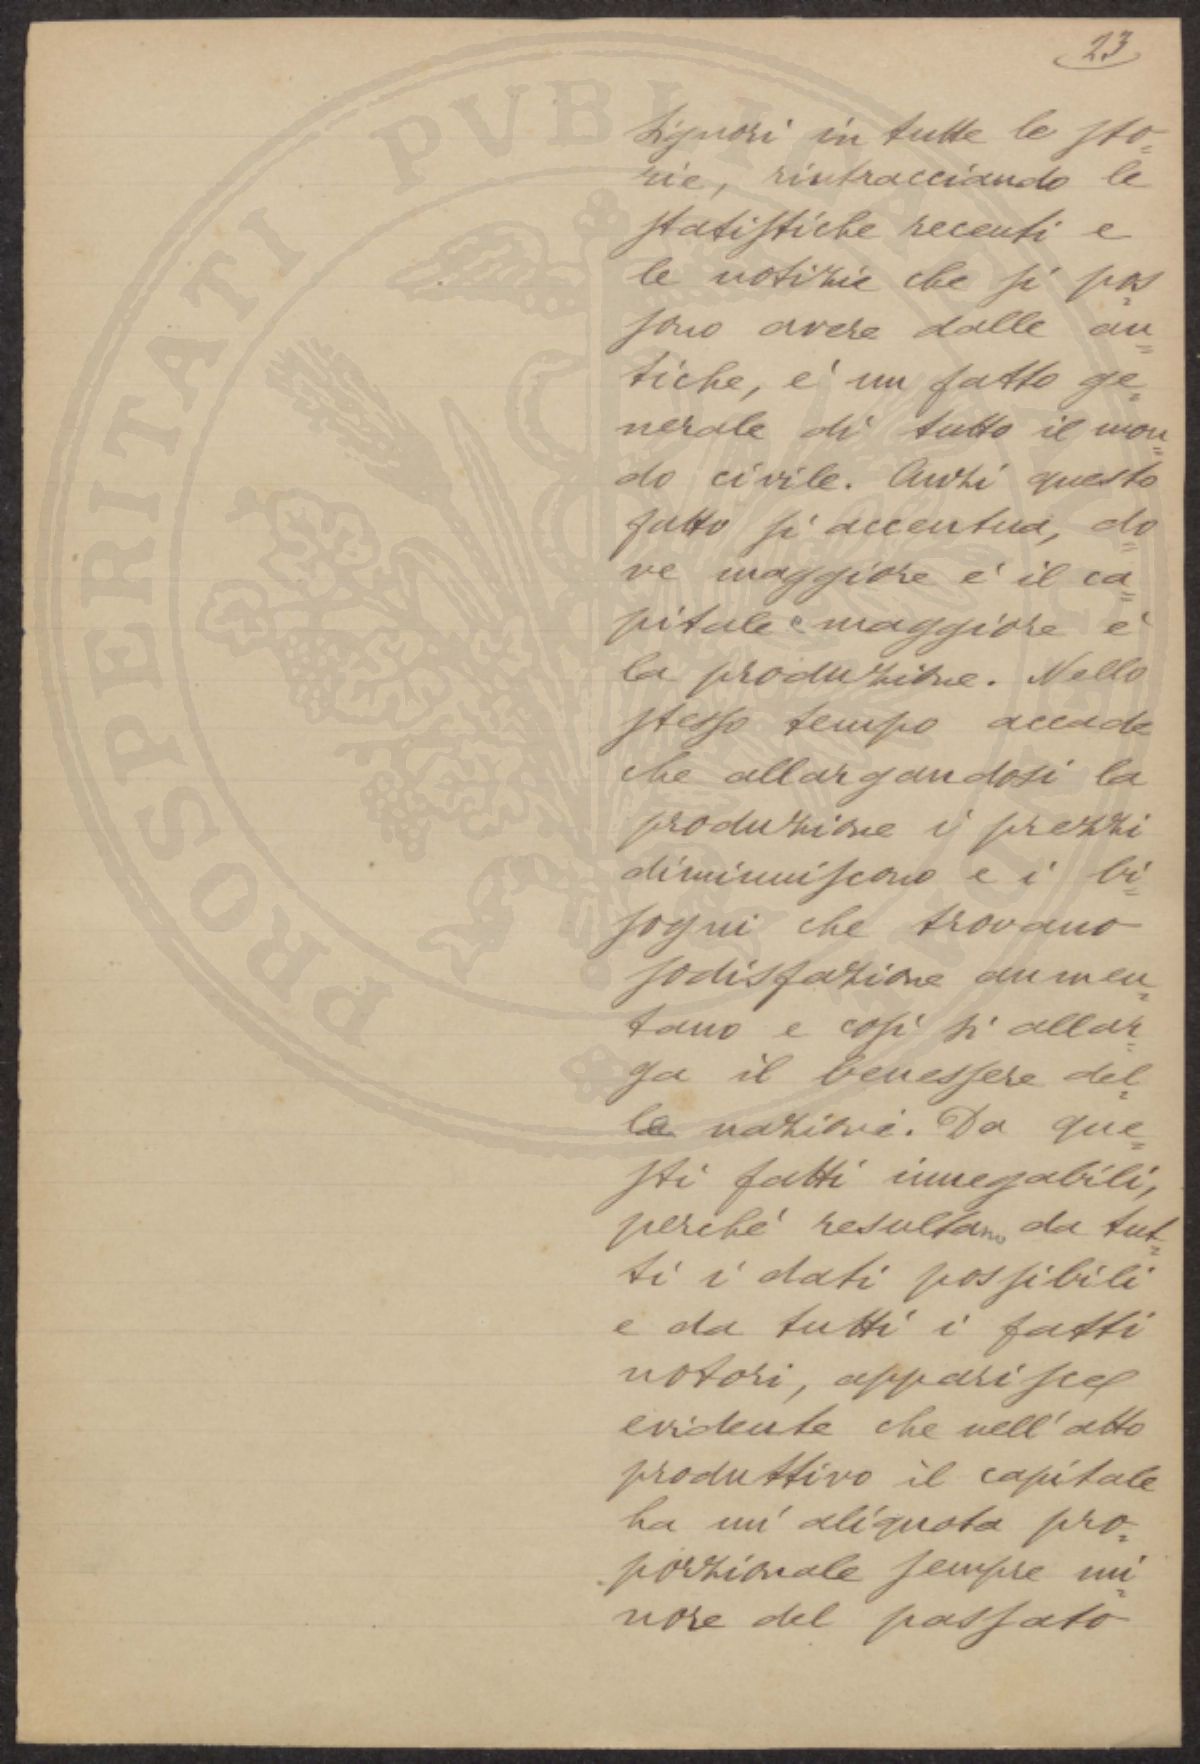 23
Signori in tutte le sto=
rie, rintracciando le
statistiche recenti e
le notizie che si pos=
sono avere dalle an=
tiche, e' un fatto ge=
nerale di tutto il mon=
do civile. Anzi questo
fatto si accentua, do=
ve maggiore e' il ca=
pitale e maggiore e'
la produzione. Nello
stesso tempo accade
che allargandosi la
produzione i prezzi
diminuiscono e i bi=
sogni che trovano
sodisfazione aumen=
tano e così si allar=
ga il benessere del=
le nazioni. Da que=
sti fatti innegabili,
perché resultano da tut=
ti i dati possibili
e da tutti i fatti
notori, apparisce
evidente che nell'atto
produttivo il capitale
ha un'aliquota pro=
porzionale sempre mi=
nore del passato
PROSPERITATI PVBLICAE